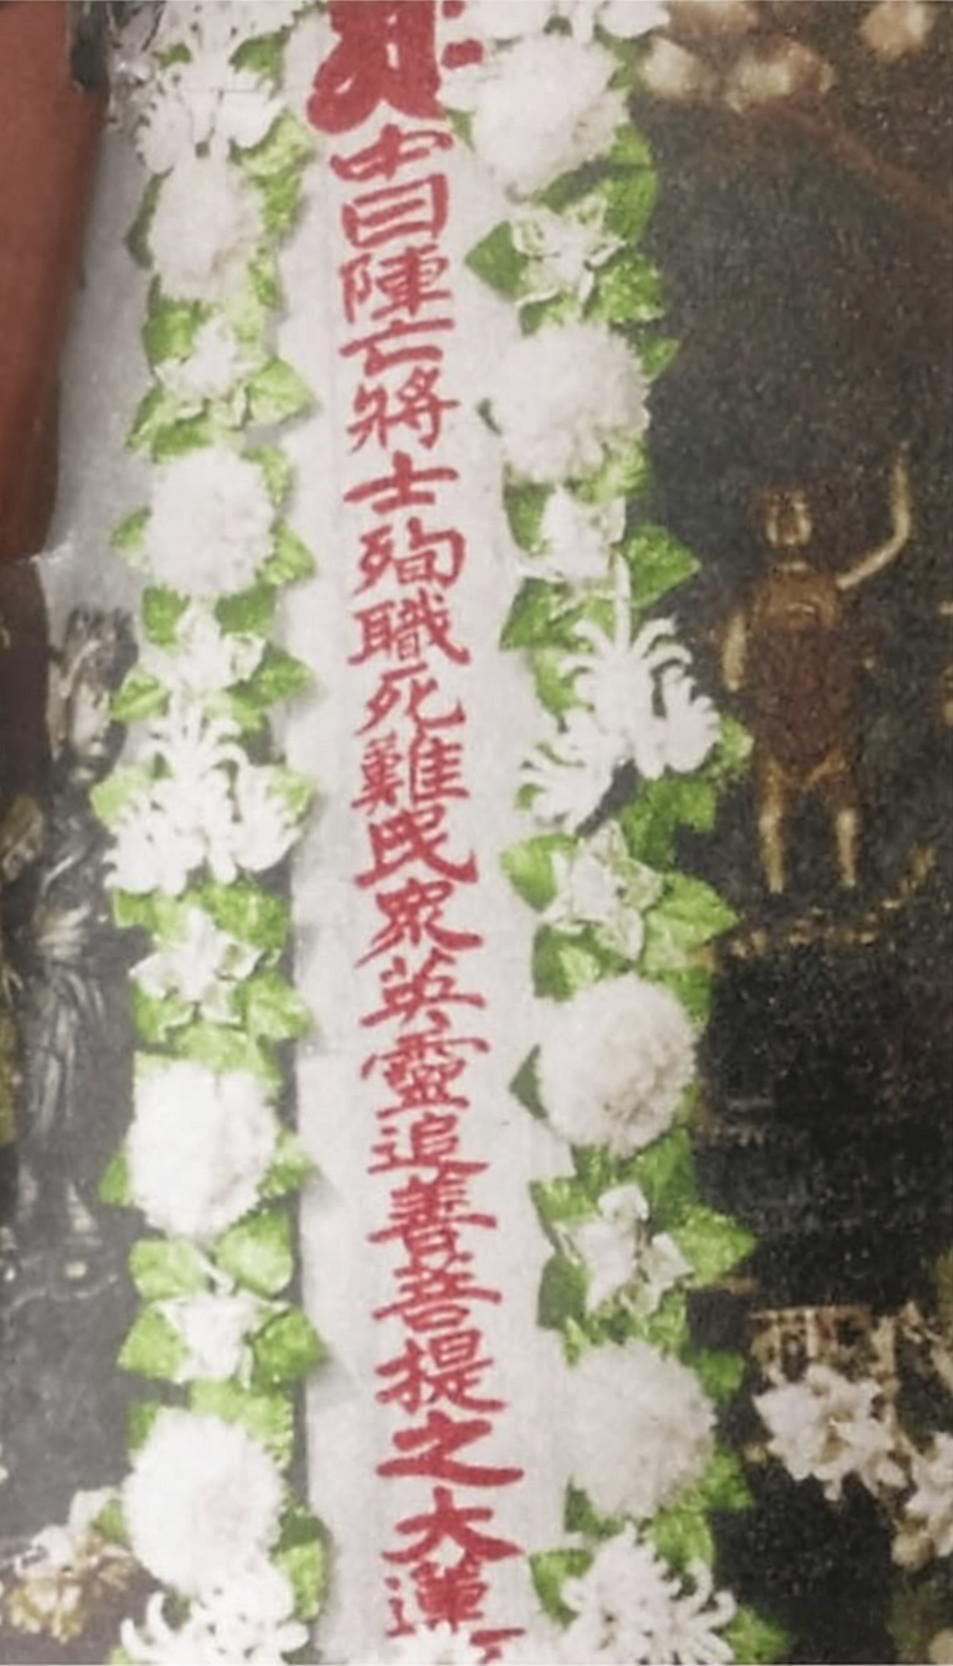 中国陣亡將士殉職死難民眾英靈追善菩提之大蓮